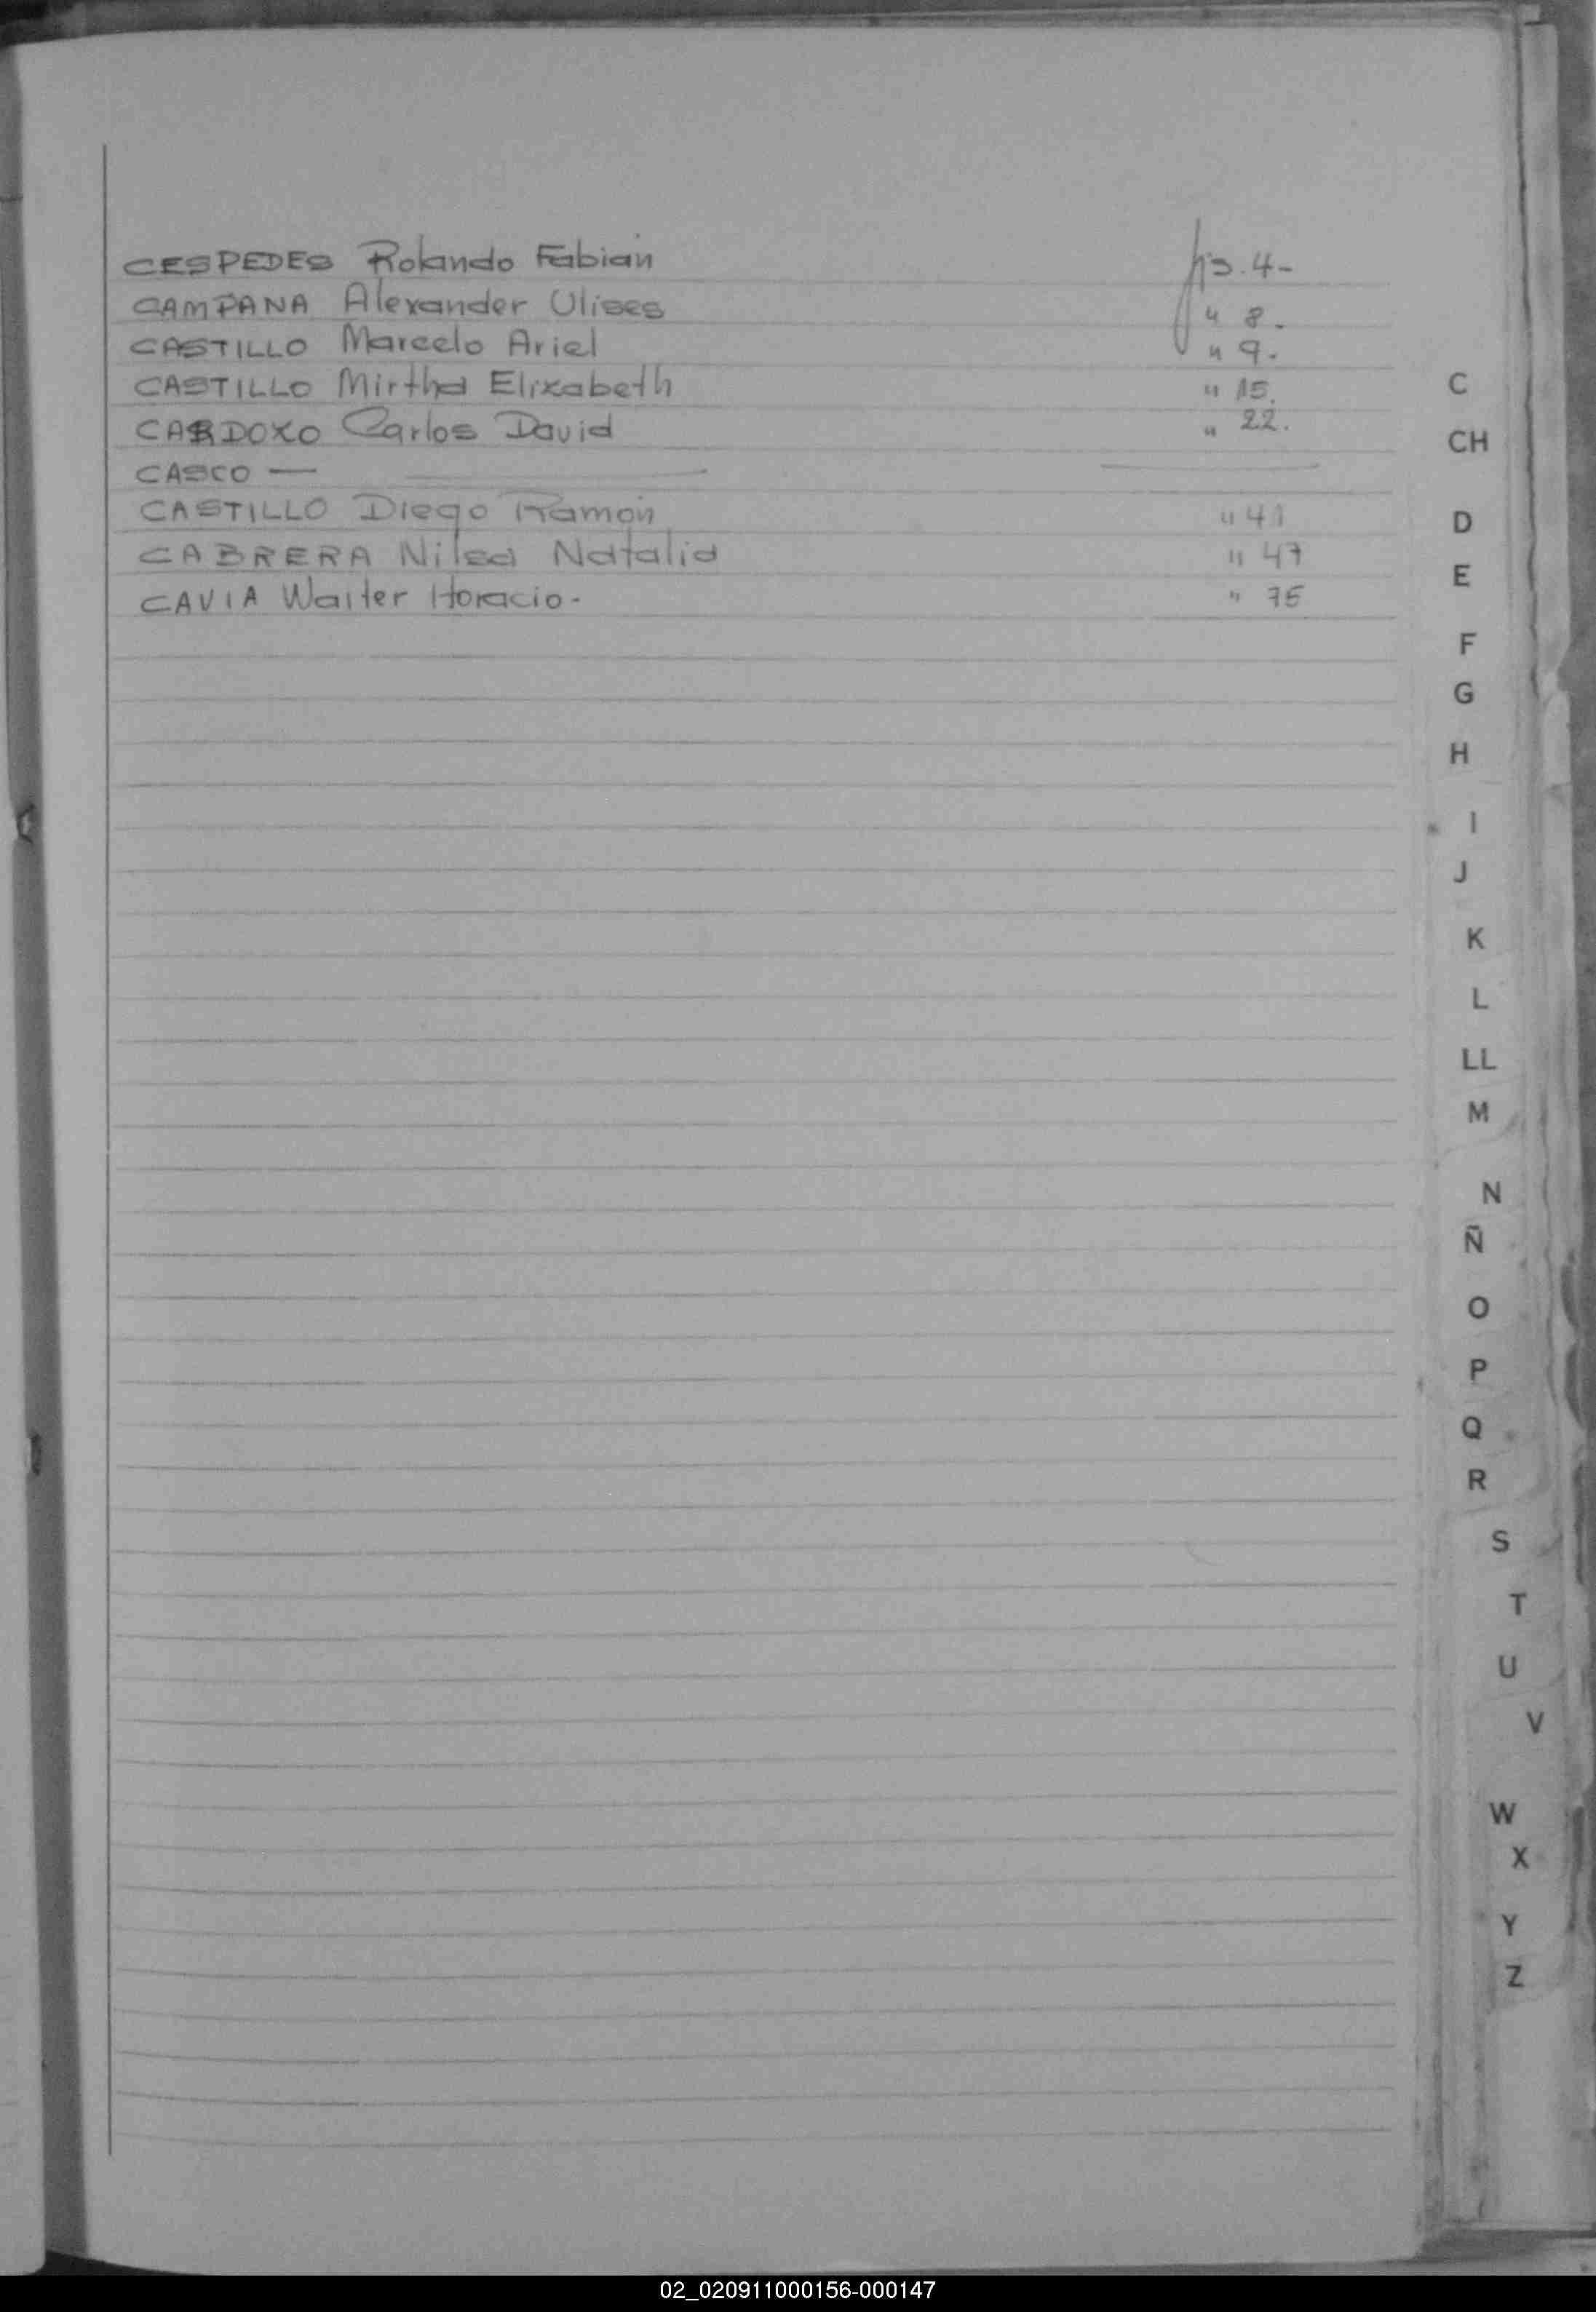 CESPEDES Rolando Fabian fjs. 4-
CAMPANA Alexander Ulises " 8.
CASTILLO Marcelo Ariel " 9.
CASTILLO Mirtha Elizabeth " 15.
CARDOZO Carlos David " 22.
CASCO —
CASTILLO Diego Ramón " 41
CABRERA Nilsa Natalia " 47
CAVIA Walter Horacio- " 75
C
CH
D
E
F
G
H
I
J
K
L
LL
M
N
Ñ
O
P
Q
R
S
T
U
V
W
X
Y
Z
02_020911000156-000147